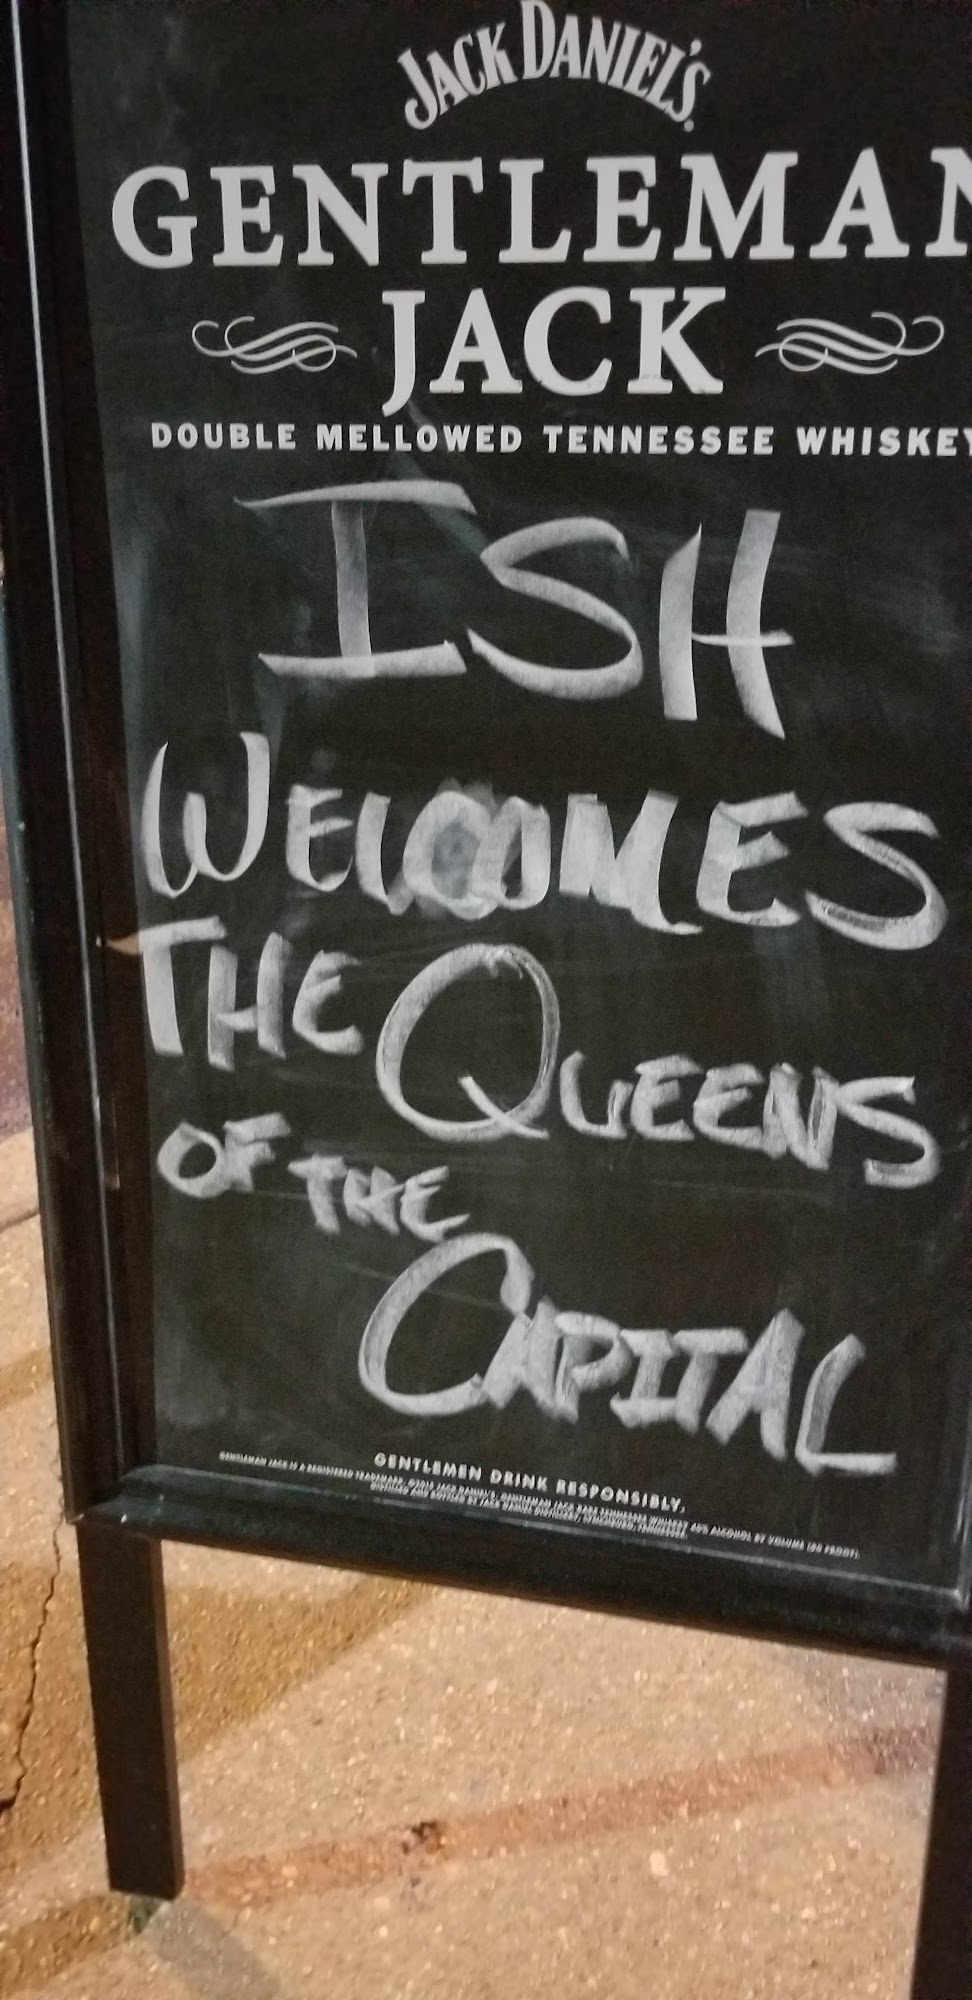 JACK DANIEL'S
GENTLEMAN
JACK
DOUBLE MELLOWED TENNESSEE WHISKEY
ISH
WELCOMES
THE QUEENS
OF THE
CAPITAL
GENTLEMEN DRINK RESPONSIBLY.
GENTLEMAN JACK IS A REGISTERED TRADEMARK. JACK DANIEL'S. GENTLEMAN JACK RARE TENNESSEE WHISKEY 40% ALCOHOL BY VOLUME (80 PROOF).
DISTILLED AND BOTTLED BY JACK DANIEL DISTILLERY, LYNCHBURG, TENNESSEE.